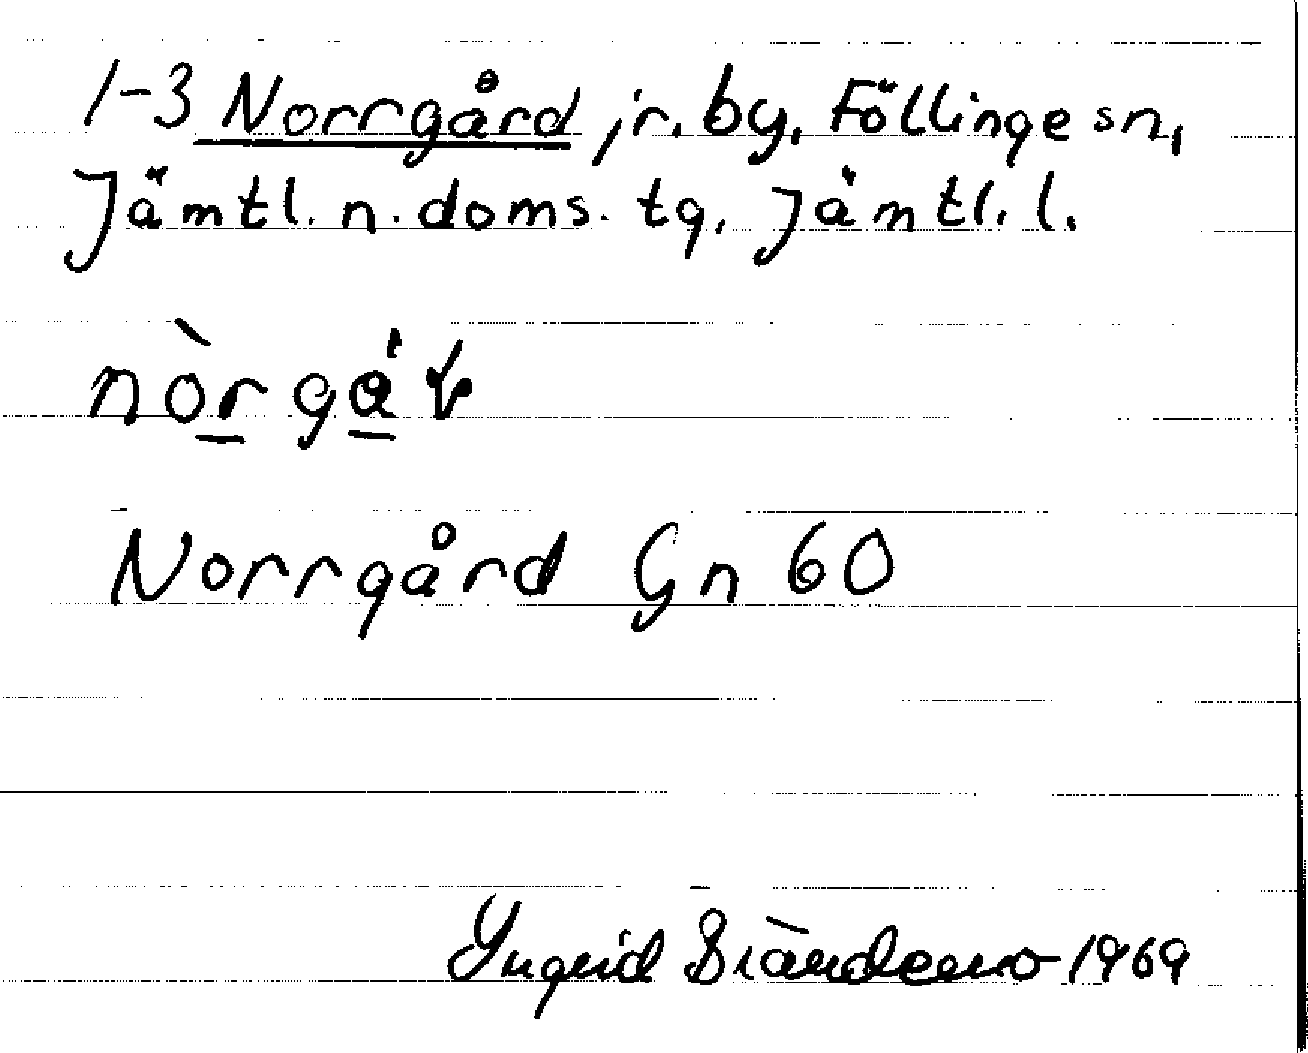 1-3 Norrgård, jr. by, Föllinge sn,
Jämtl. n. doms. tg, Jämtl. l.
Norrgård Gn 60
Ingrid Brändemo 1969